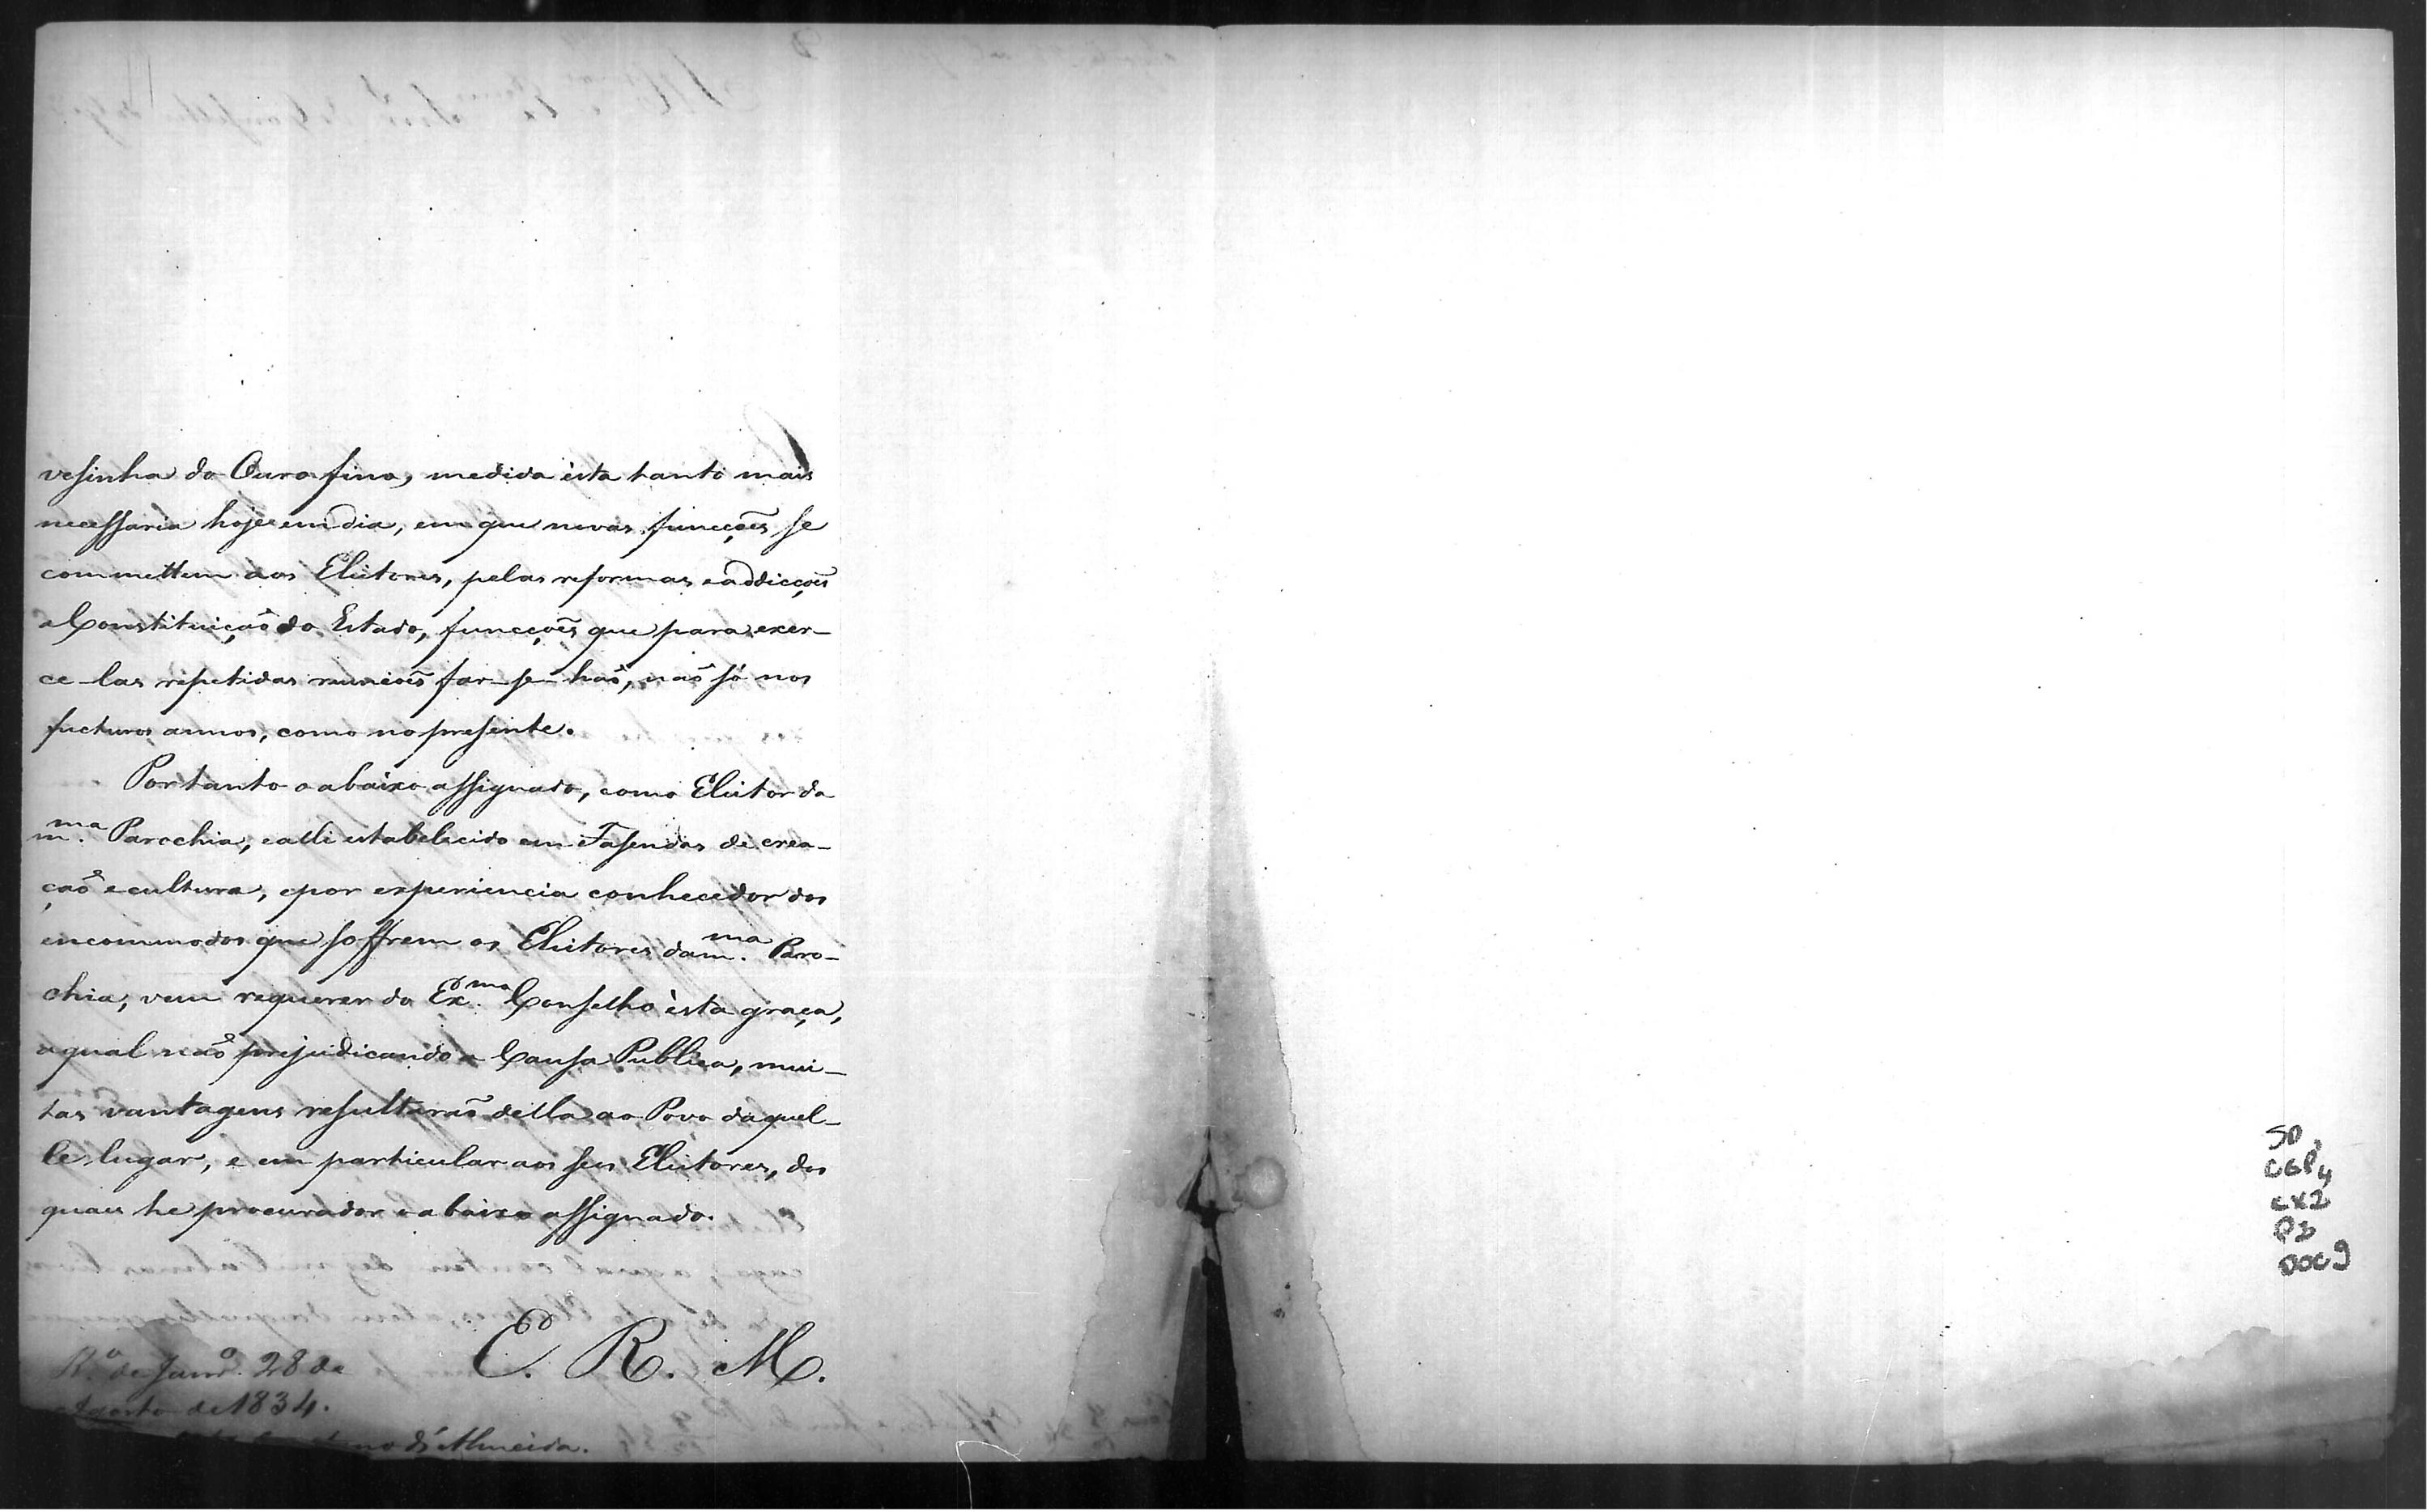 vesinha do Ouro fino, medida ésta tanto mais
necessaria hoje em dia, em que novas funcções se
commettem aos Eleitores, pelas reformas e addicções
a Constituição do Estado, funcções que para exer-
ce-las repetidas reunioẽs far-se-hão, não só nos
fucturos annos, como no presente.
Portanto o abaixo assignado, como Eleitor da
m.ma Parochia, e alli estabelecido em Fasendas de crea-
ção e cultura, e por experiencia conhecedor dos
encommodos que soffrem os Eleitores da m.ma Paro-
chia, vem requerer do Ex.mo Conselho ésta graça,
a qual não prejudicando a Causa Publica, mui-
tas vantagens resultarão della ao Povo daquel-
le lugar, e em particular aos seus Eleitores, dos
quaes he procurador o abaixo assignado.
E. R. M.
R.o de Janr.o 28 de
Agosto de 1834.
d'Almeida.
SP
CGP4
CX2
P2
DOC9